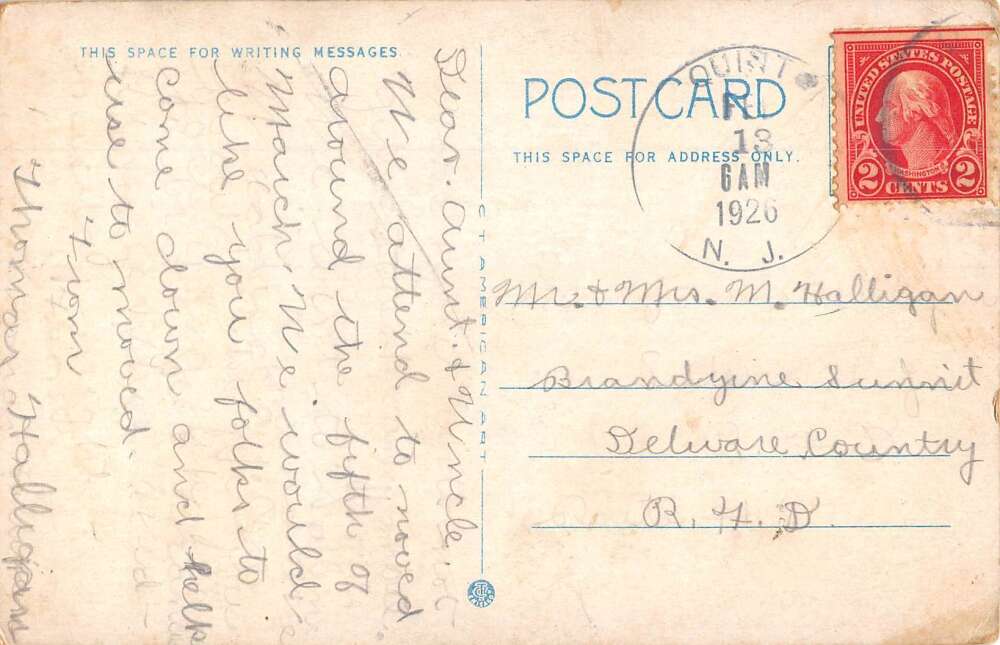 THIS SPACE FOR WRITING MESSAGES.
Dear. Aunt. & Uncle.
We attend to moved
around the fifth of
March We would
like you folks to
come down and help
use to moved.
From
Thomas Halligan
C T AMERICAN ART
POST CARD
THIS SPACE FOR ADDRESS ONLY.
QUIST
FE
13
6AM
1926
N. J.
UNITED STATES POSTAGE
WASHINGTON
2 CENTS 2
Mr. & Mrs. M. Halligan
Brandyine Summit
Delware Country
R. F. D.